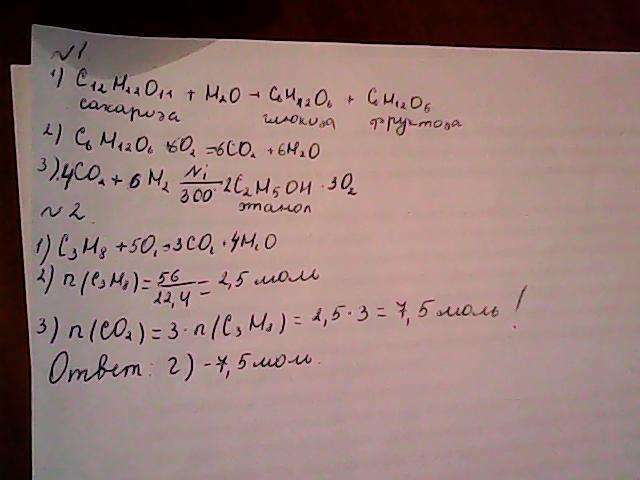 №1
1) C₁₂H₂₂O₁₁ + H₂O → C₆H₁₂O₆ + C₆H₁₂O₆
сахароза глюкоза фруктоза
2) C₆H₁₂O₆ 6O₂ = 6CO₂ + 6H₂O
3) 4CO₂ + 6H₂ Ni/300° 2C₂H₅OH · 3O₂
этанол
№2
1) C₃H₈ + 5O₂ → 3CO₂ + 4H₂O
2) n(C₃H₈) = 56/22,4 = 2,5 моль
3) n(CO₂) = 3·n(C₃H₈) = 2,5·3 = 7,5 моль!
Ответ: 2) - 7,5 моль.